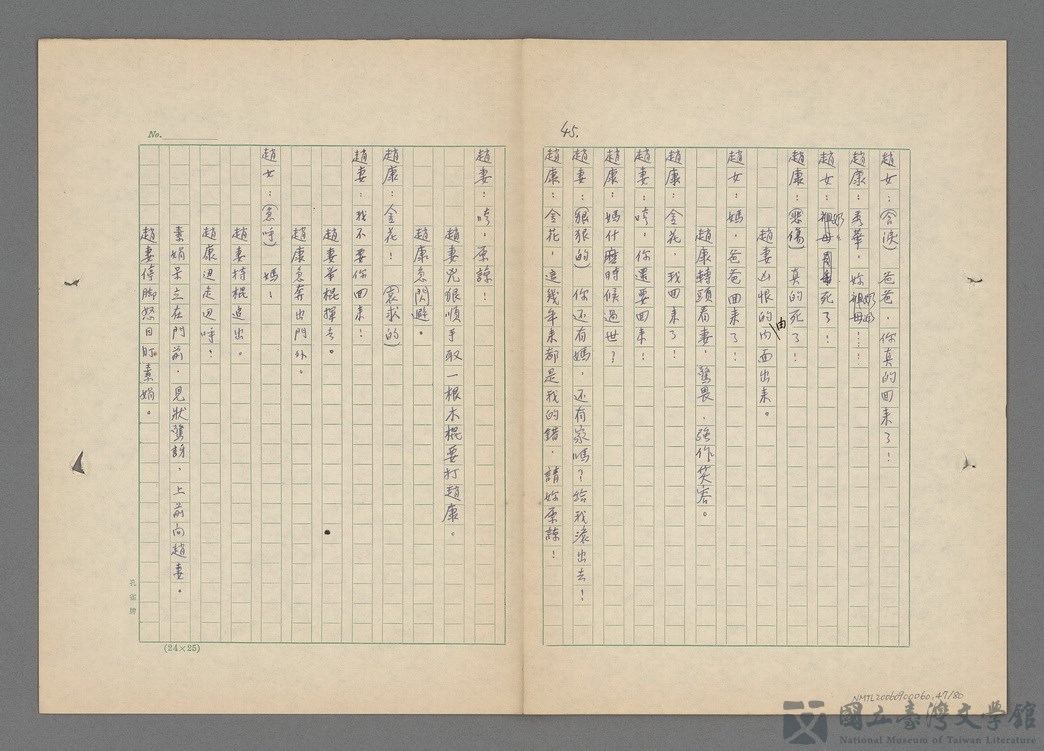 45.
趙女：(含淚) 爸爸，你真的回來了！
趙康：秀華，妳奶奶……
趙女：奶奶死了！
趙康：(悲傷) 真的死了！
趙妻凶恨的由內面出來。
趙女：媽，爸爸回來了！
趙康轉頭看妻，驚畏，強作笑容。
趙康：金花，我回來了！
趙妻：哼，你還要回來！
趙康：媽什麼時候過世？
趙妻：(狠狠的) 你还有媽，还有家嗎？給我滾出去！
趙康：金花，這幾年來都是我的錯，請妳原諒！
No.
趙妻：哼，原諒！
趙妻兇狠順手取一根木棍要打趙康。
趙康急閃避。
趙康：金花！(哀求的)
趙妻：我不要你回來！
趙妻举棍揮去。
趙康急奔出門外。
趙女：(急呼) 媽！
趙妻持棍追出。
趙康边走边呼！
素娟呆立在門前，見狀驚訝，上前向趙妻。
趙妻停脚怒目盯素娟。
孔雀牌
(24×25)
NMTL20060900060.47/80
國立臺灣文學館
National Museum of Taiwan Literature